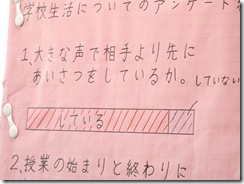 学校生活についてのアンケート
1.大きな声で相手より先に
あいさつをしているか。
していない
している
2.授業の始まりと終わりに